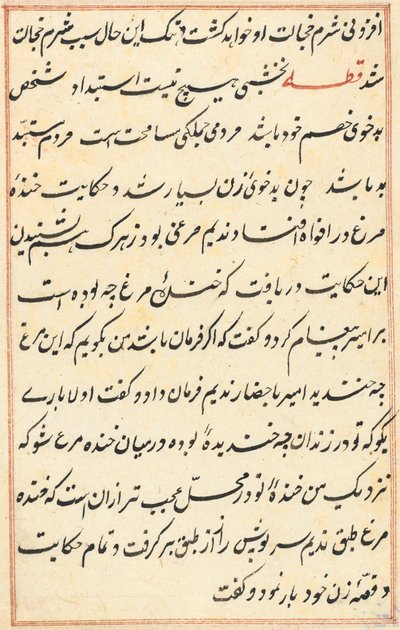 افزونی شرم خجالت او خواهد گشت و تک این حال سبب شرم خجالت
شد قطعه نخشبی هیچ نیست استبداد شخص
بدخوی خصم خود باشد مردمی جملگی مسامحت است مردم مستبد
بد باشد چون بدخوئ زن بسیار شد و حکایت خندهٔ
مرغ در افواه افتاد ندیم مرغی بود زیرک بشنیدن
این حکایت دریافت که خندهٔ مرغ چه بوده است
بر امیر پیغام کرد و گفت که اگر فرمان باشد من بگویم که این مرغ
چه خندید امیر باحضار ندیم فرمان داد و گفت اولا بارے
بگو که تو در زندان چه خندیدهٔ بوده در میان خنده مرع شو که
نزدیک من خندهٔ تو در محل عجب تر ازان است که خنده
مرغ طبق ندیم سرپوش راز از طبق برگرفت و تمام حکایت
و قصّهٔ زن خود باز نمود و گفت